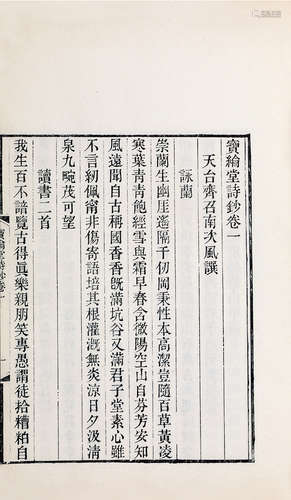 寶綸堂詩鈔卷一
天台齊召南次風譔
詠蘭
崇蘭生幽崖遙隔千仞岡秉性本高潔豈隨百草黃凌
寒葉青青飽經雪與霜早春含微陽空山自芬芳安知
風遠聞自古稱國香香旣滿坑谷又滿君子堂素心雖
不言紉佩甯非傷寄語培其根灌漑無炎涼日夕汲清
泉九畹茂可望
讀書二首
我生百不諳覽古得真樂親朋笑專愚謂徒拾糟粕自
寶綸堂詩鈔卷一
一